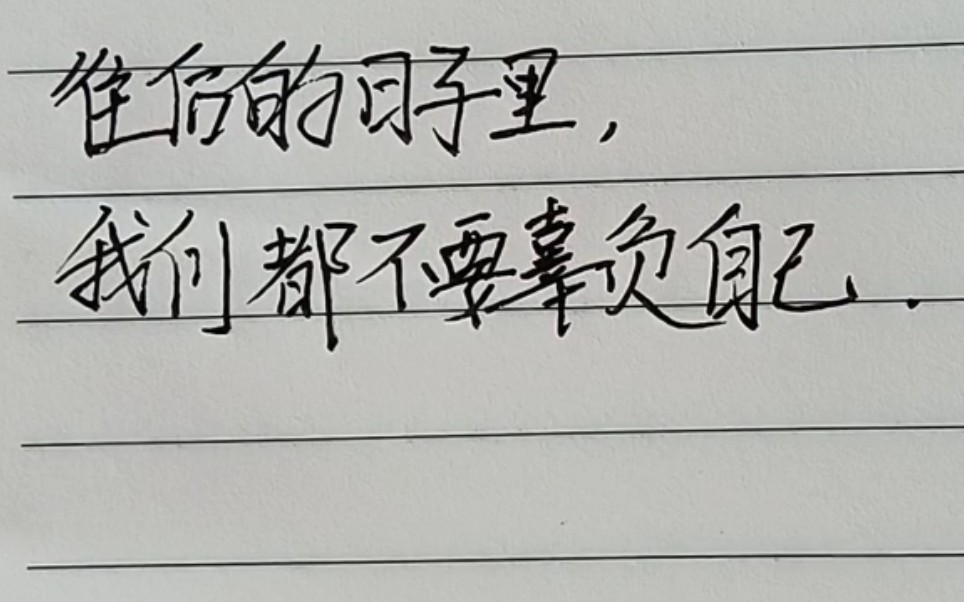 往后的日子里,
我们都不要辜负自己.